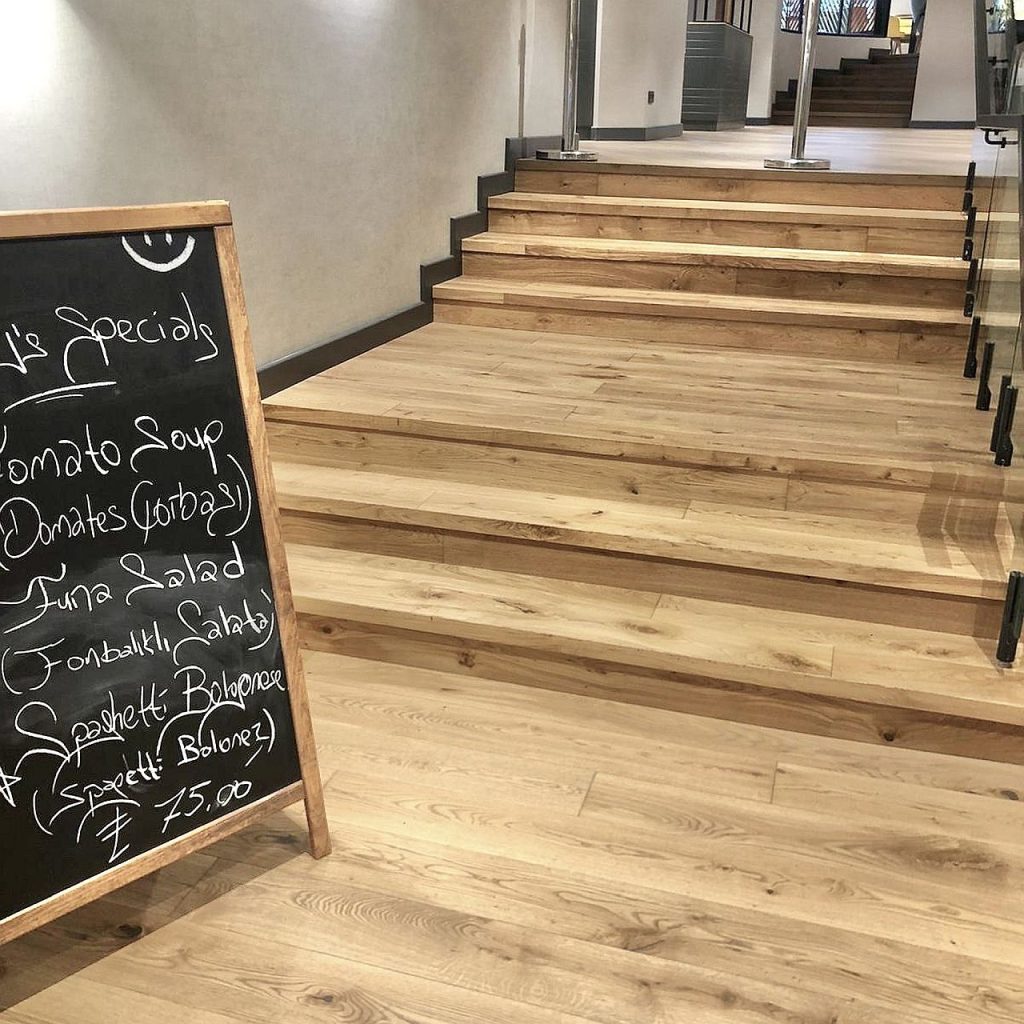 's Specials
Tomato Soup
(Domates Çorbası)
Tuna Salad
(Tonbalıklı Salata)
Spaghetti Bolognese
(Spagetti Bolonez)
₺ 75.00